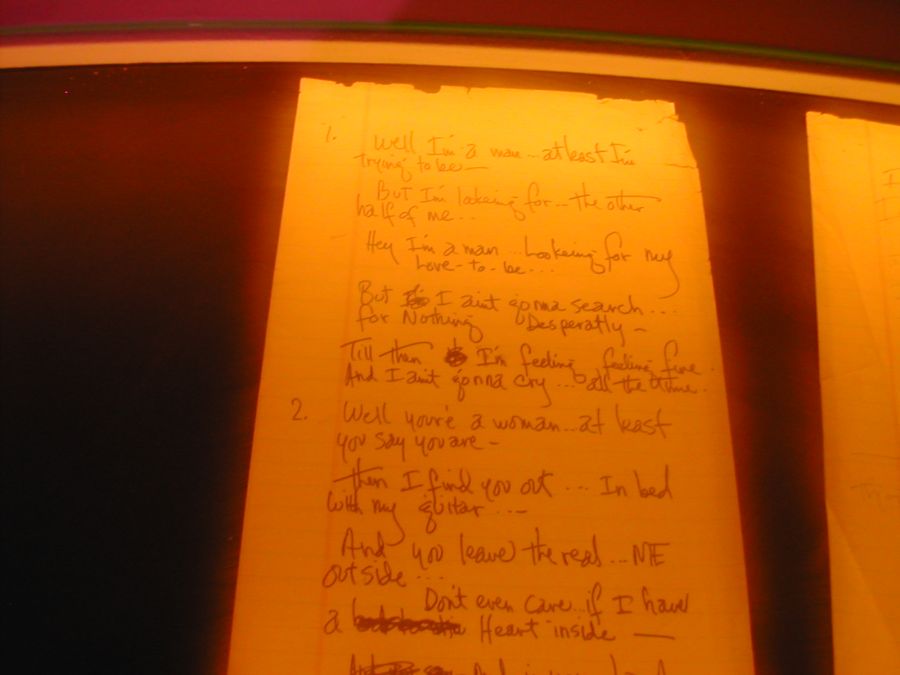 1. Well I'm a man... at least I'm
trying to be—
But I'm lokeing for... the other
half of me...
Hey I'm a man... Lookeing for my
Love-to-be...
But I aint gonna search...
for Nothing Desperatly—
Till then I'm feeling, feeling fine.
And I ain't gonna cry... all the time.
2. Well your'e a woman... at least
you say you are—
then I find you out... In bed
with my guitar...—
And you leave the real... ME
outside...
Don't even care... if I have
a Heart inside —